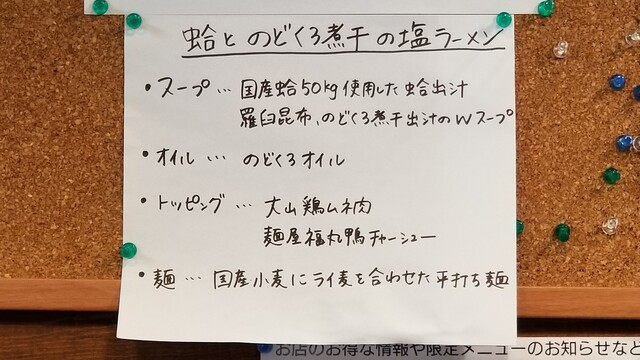 蛤と のどくろ煮干の塩ラーメン
・スープ… 国産蛤50kg使用した蛤出汁
羅臼昆布、のどくろ煮干出汁のWスープ
・オイル … のどくろオイル
・トッピング … 大山鶏ムネ肉
麺屋福丸鴨チャーシュー
・麺 … 国産小麦にライ麦を合わせた平打ち麺
お店のお得な情報や限定メニューのお知らせなど